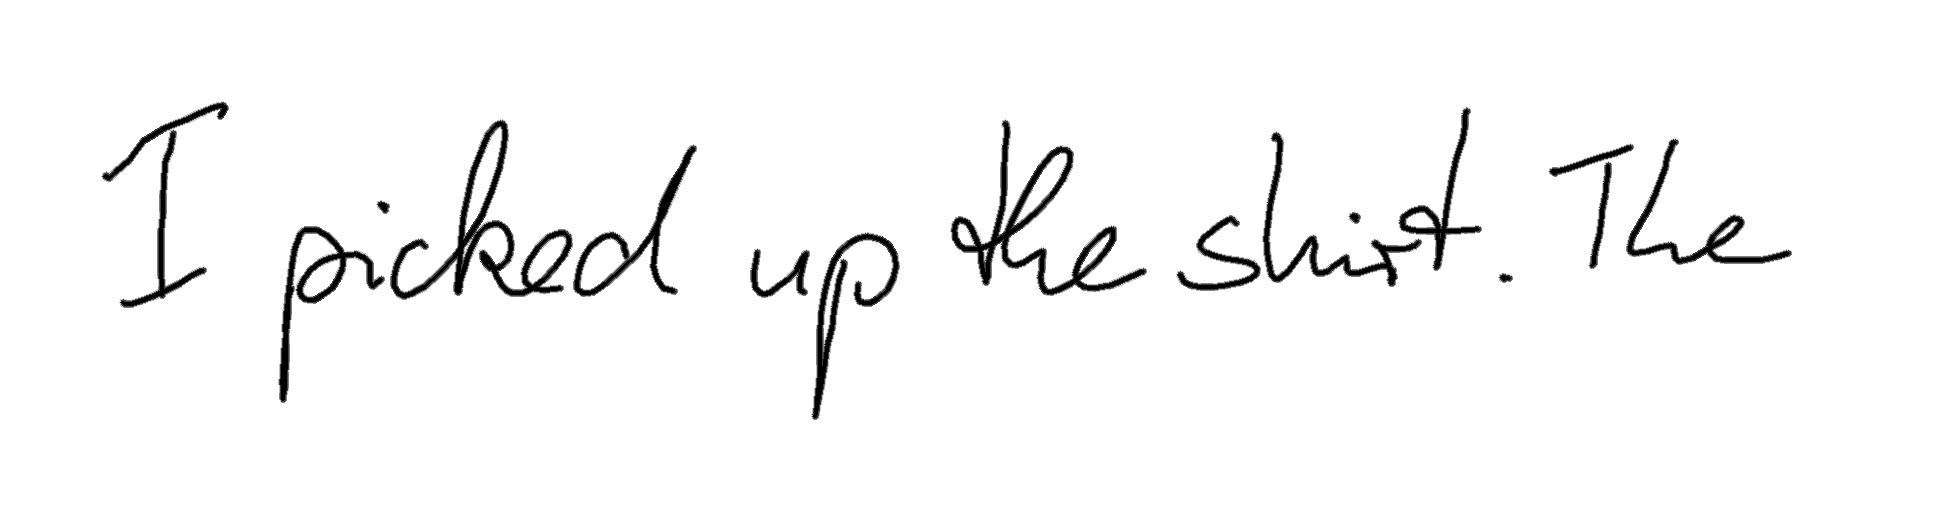 I picked up the shirt. The